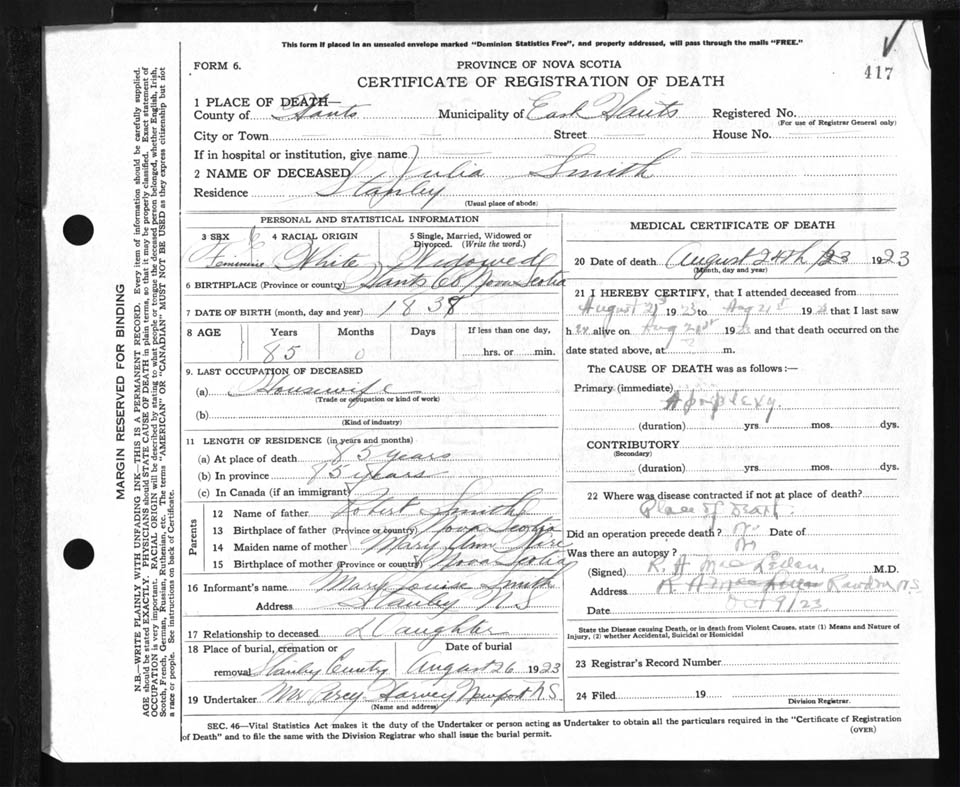 This form if placed in an unsealed envelope marked "Dominion Statistics Free", and properly addressed, will pass through the mails "FREE."
417
FORM 6.
PROVINCE OF NOVA SCOTIA
CERTIFICATE OF REGISTRATION OF DEATH
1 PLACE OF DEATH—
County of Hants Municipality of East Hants Registered No.
(For use of Registrar General only)
City or Town Street House No.
If in hospital or institution, give name
2 NAME OF DECEASED Julia Smith
Residence Stanley
(Usual place of abode)
PERSONAL AND STATISTICAL INFORMATION
3 SEX 4 RACIAL ORIGIN 5 Single, Married, Widowed or Divorced. (Write the word.)
Feminine White Widowed
6 BIRTHPLACE (Province or country) Hants Co Nova Scotia
7 DATE OF BIRTH (month, day and year) 1838
8 AGE Years Months Days If less than one day,
85 0 hrs. or min.
9. LAST OCCUPATION OF DECEASED
(a) Housewife
(Trade or occupation or kind of work)
(b)
(Kind of industry)
11 LENGTH OF RESIDENCE (in years and months)
(a) At place of death 85 years
(b) In province 85 years
(c) In Canada (if an immigrant)
Parents
12 Name of father Robert Smith
13 Birthplace of father (Province or country) Nova Scotia
14 Maiden name of mother Mary Ann
15 Birthplace of mother (Province or country) Nova Scotia
16 Informant's name Mary Louise Smith
Address Stanley N S
17 Relationship to deceased Daughter
18 Place of burial, cremation or removal Date of burial
Stanley August 26 1923
19 Undertaker Harvey Newport N.S.
(Name and address)
MEDICAL CERTIFICATE OF DEATH
20 Date of death August 24th 1923
(Month, day and year)
21 I HEREBY CERTIFY, that I attended deceased from
August 21st 1923 to Aug 21st 1923 that I last saw
her alive on Aug 21st 1923 and that death occurred on the
date stated above, at m.
The CAUSE OF DEATH was as follows:—
Primary (immediate)
Apoplexy
(duration) yrs. mos. dys.
CONTRIBUTORY
(Secondary)
(duration) yrs. mos. dys.
22 Where was disease contracted if not at place of death?
Place of death
Did an operation precede death? no Date of
Was there an autopsy? no
(Signed) R. A. M.D.
Address Rawdon N.S.
Date Oct 9/23
State the Disease causing Death, or in death from Violent Causes, state (1) Means and Nature of
Injury, (2) whether Accidental, Suicidal or Homicidal
23 Registrar's Record Number
24 Filed 19
Division Registrar.
SEC. 46—Vital Statistics Act makes it the duty of the Undertaker or person acting as Undertaker to obtain all the particulars required in the "Certificate of Registration
of Death" and to file the same with the Division Registrar who shall issue the burial permit.
(OVER)
MARGIN RESERVED FOR BINDING
N.B.—WRITE PLAINLY WITH UNFADING INK—THIS IS A PERMANENT RECORD. Every item of information should be carefully supplied.
AGE should be stated EXACTLY. PHYSICIANS should STATE CAUSE OF DEATH in plain terms, so that it may be properly classified. Exact statement of
OCCUPATION is very important. RACIAL ORIGIN will be described by stating to what people or tongue the deceased person belonged, whether English, Irish,
Scotch, French, German, Russian, Ruthenian, etc. The terms "AMERICAN" OR "CANADIAN" MUST NOT BE USED as they express citizenship but not
a race or people. See instructions on back of Certificate.